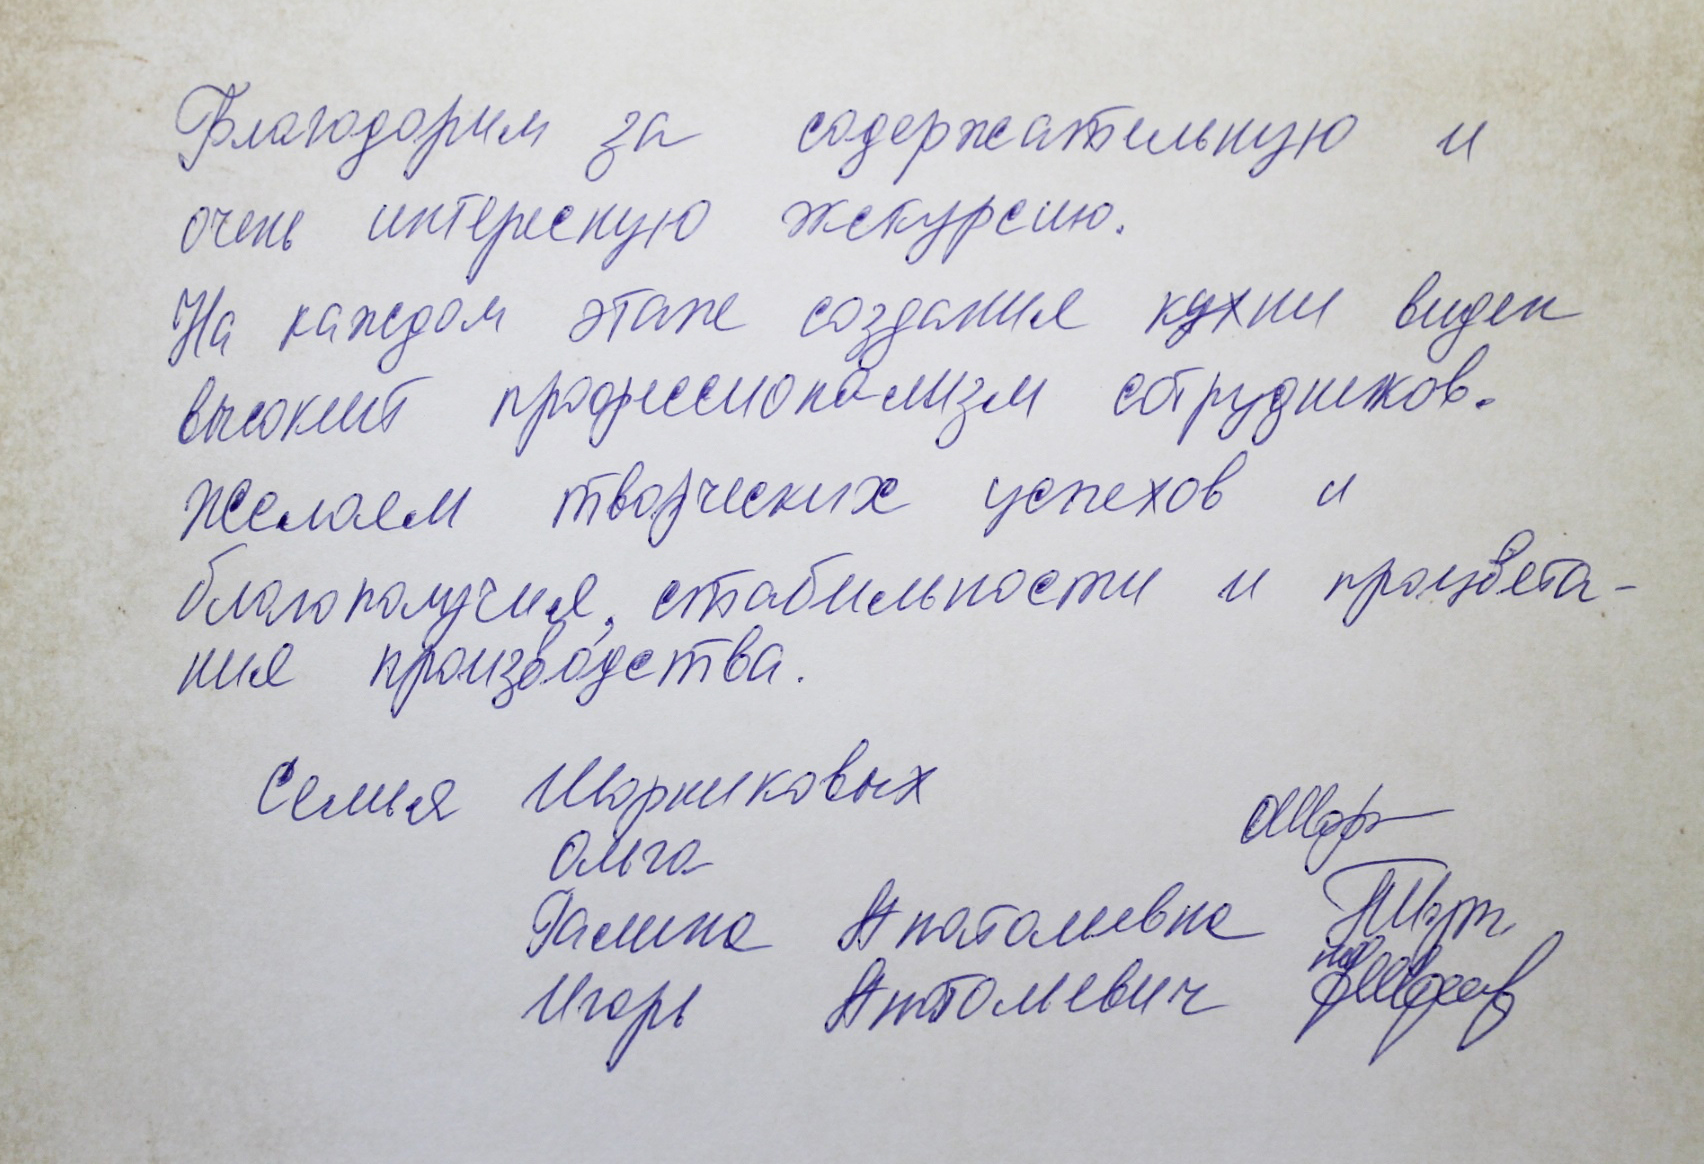 Благодорим за содержательную и
очень интересную экскурсию.
На каждом этапе создания кухни виден
высокий профессионализм сотрудников.
Желаем творческих успехов и
благополучия, стабильности и процвета-
ния производства.
Семья Шорниковых
Ольга
Галина Анатолиевна
Игорь Анатольевич